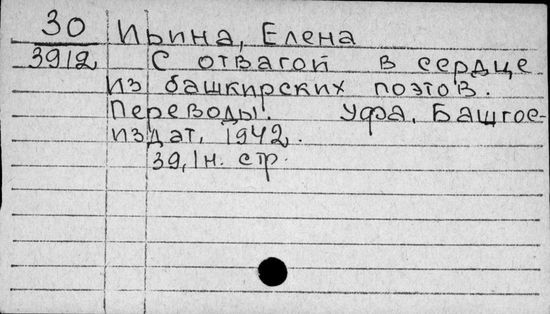 30 Ирина, Елена
3912 С отвагой в сердце
из башкирских поэтов.
Переводы. Уфа, Башгос-
издат, 1942.
39, 1 н. стр.